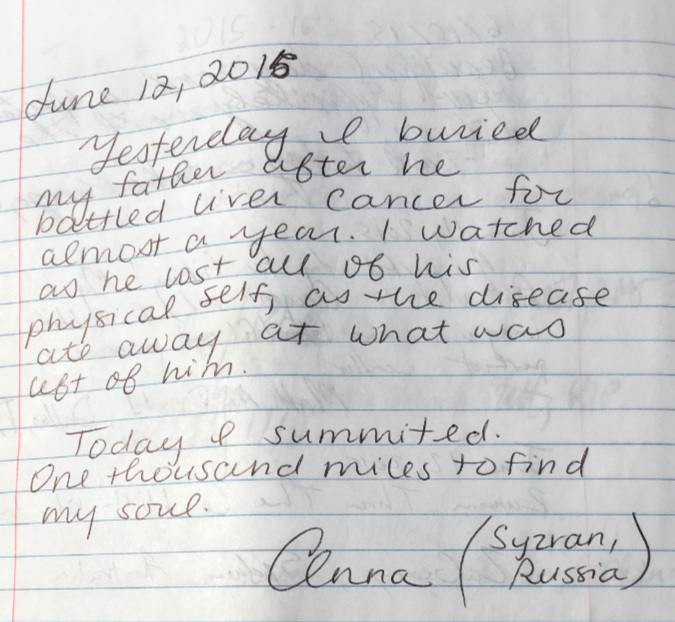 June 12, 2015
Yesterday I buried
my father after he
battled liver cancer for
almost a year. I watched
as he lost all of his
physical self, as the disease
ate away at what was
left of him.
Today I summited.
One thousand miles to find
my soul.
Anna (Syzran,
Russia)